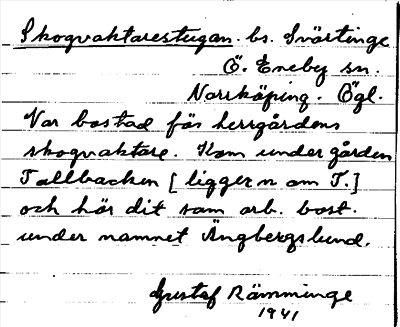 Skogvaktarestugan. bs. Svärtinge
Ö. Eneby sn.
Norrköping. Ögl.
Var bostad för herrgårdens
skogvaktare. Kom under gården
Tallbacken [ligger n om T.]
och hör dit som arb. bost.
under namnet Ängbergslund.
Gustaf Rämminge
1941